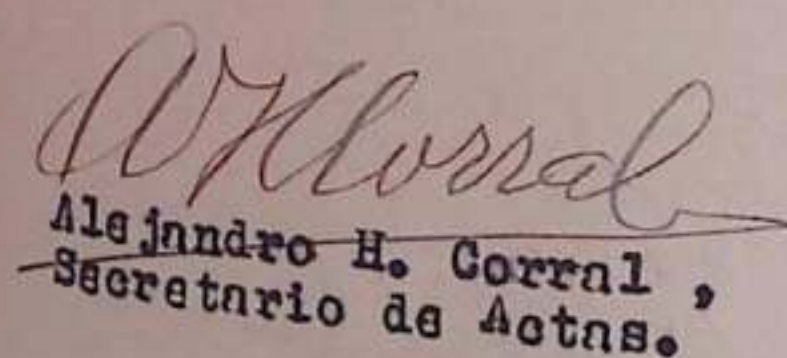 AHCorral
Alejandro H. Corral ,
Secretario de Actas.